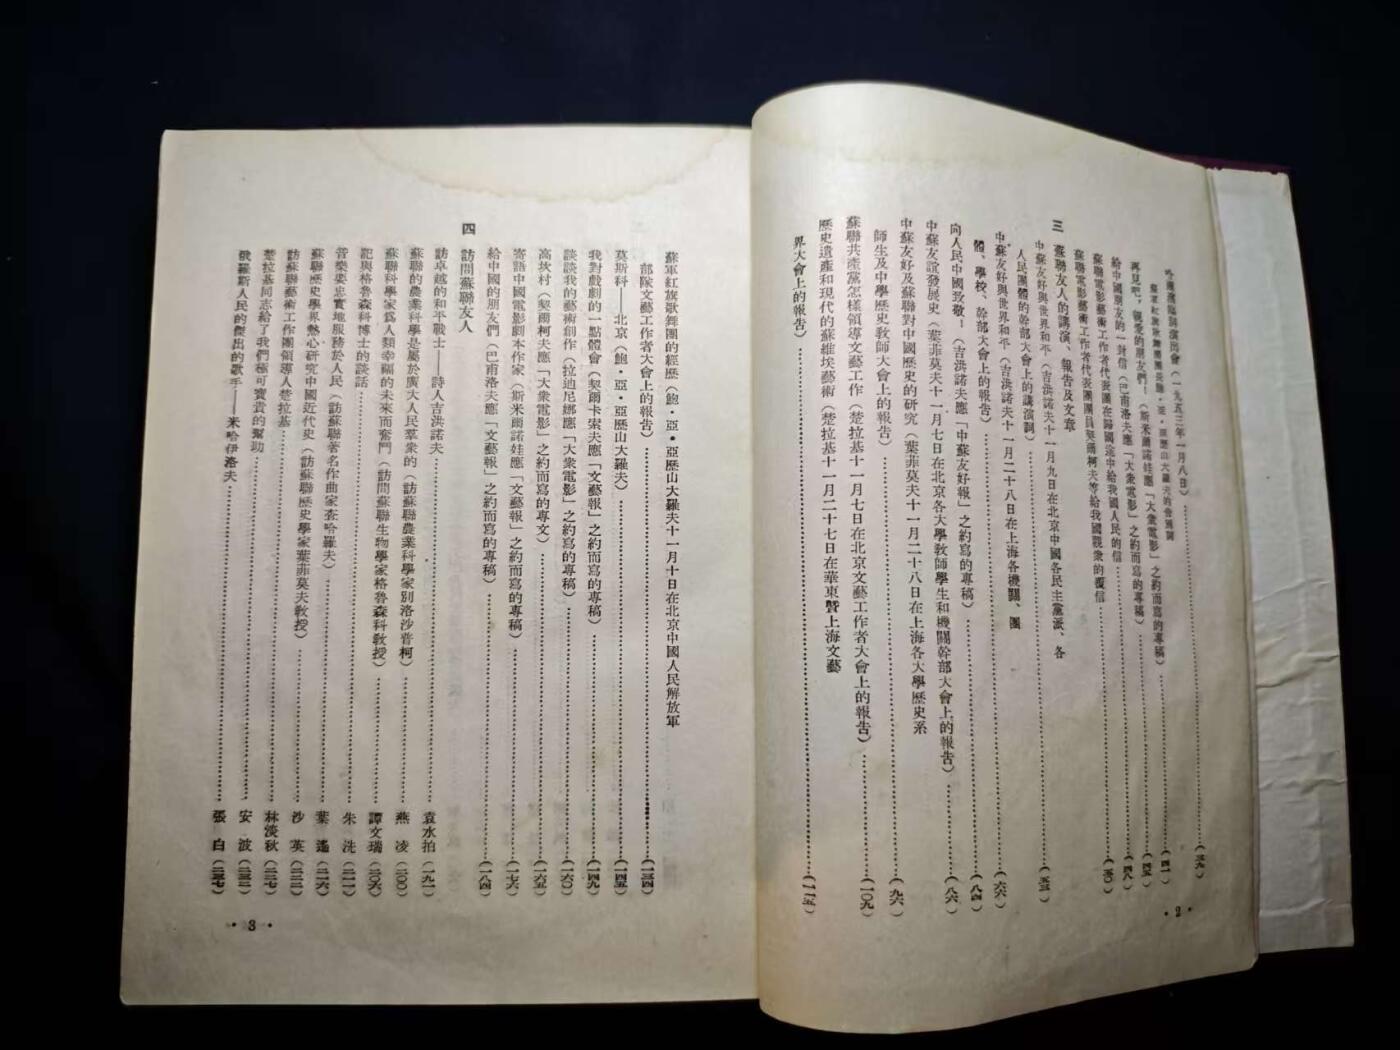 在歡迎臨別演出會（一九五三年一月八日）……（三九）
蘇軍紅旗歌舞團團長鮑·亞·亞歷山大羅夫的告別詞
再見吧，親愛的朋友們！（斯米爾諾娃應「大衆電影」之約而寫的專稿）……（四一）
給中國朋友的一封信（巴甫洛夫應「大衆電影」之約而寫的專稿）……（四五）
蘇聯電影藝術工作者代表團在歸國途中給我國人民的信……（四八）
蘇聯電影藝術工作者代表團團員契爾柯夫等給我國觀衆的覆信……（五〇）
三　蘇聯友人的講演、報告及文章
中蘇友好與世界和平（吉洪諾夫十一月九日在北京中國各民主黨派、各
人民團體的幹部大會上的講演詞）……（五三）
中蘇友好與世界和平（吉洪諾夫十一月二十八日在上海各機關、團
體、學校、幹部大會上的報告）……（六六）
向人民中國致敬！（吉洪諾夫應「中蘇友好報」之約寫的專稿）……（八四）
中蘇友誼發展史（葉菲莫夫十一月七日在北京各大學教師學生和機關幹部大會上的報告）……（八六）
中蘇友好及蘇聯對中國歷史的研究（葉菲莫夫十一月二十八日在上海各大學歷史系
師生及中學歷史教師大會上的報告）……（九六）
蘇聯共產黨怎樣領導文藝工作（楚拉基十一月七日在北京文藝工作者大會上的報告）……（一〇九）
歷史遺產和現代的蘇維埃藝術（楚拉基十一月二十七日在華東暨上海文藝
界大會上的報告）……（一一五）
· 2 ·
蘇軍紅旗歌舞團的經歷（鮑·亞·亞歷山大羅夫十一月十日在北京中國人民解放軍
部隊文藝工作者大會上的報告）……（一三四）
莫斯科——北京（鮑·亞·亞歷山大羅夫）……（一四五）
我對戲劇的一點體會（契爾卡索夫應「文藝報」之約而寫的專稿）……（一四九）
談談我的藝術創作（拉迪尼娜應「大衆電影」之約而寫的專稿）……（一六〇）
高坎村（契爾柯夫應「大衆電影」之約而寫的專文）……（一六五）
寄語中國電影劇本作家（斯米爾諾娃應「文藝報」之約而寫的專稿）……（一七六）
給中國的朋友們（巴甫洛夫應「文藝報」之約而寫的專稿）……（一八四）
四　訪問蘇聯友人
訪卓越的和平戰士——詩人吉洪諾夫……袁水拍（一九一）
蘇聯的農業科學是屬於廣大人民羣衆的（訪蘇聯農業科學家別洛沙普柯）……燕　凌（二〇〇）
蘇聯科學家爲人類幸福的未來而奮鬥（訪問蘇聯生物學家格魯森科教授）……譚文瑞（二〇六）
記與格魯森科博士的談話……朱　洗（二一一）
音樂要忠實地服務於人民（訪蘇聯著名作曲家查哈羅夫）……葉　遙（二一六）
蘇聯歷史學界熱心研究中國近代史（訪蘇聯歷史學家葉菲莫夫教授）……沙　英（二二二）
訪蘇聯藝術工作團領導人楚拉基……林淡秋（二二七）
楚拉基同志給了我們極可寶貴的幫助……安　波（二三二）
俄羅斯人民的傑出的歌手——米哈伊洛夫……張　白（二三七）
· 3 ·